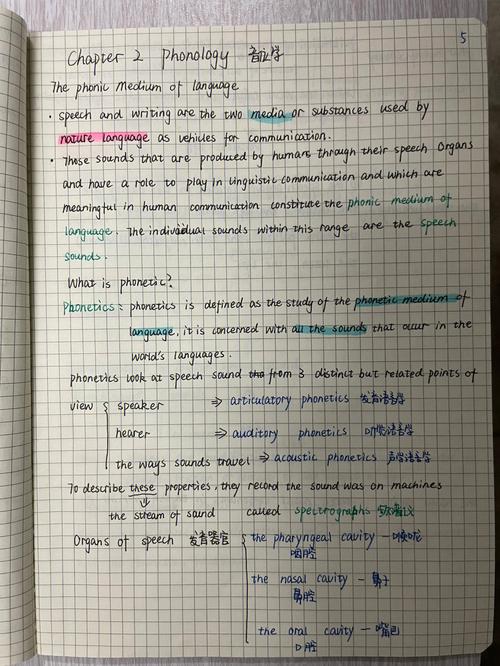 5
Chapter 2 Phonology 音位学
The phonic medium of language
· speech and writing are the two media or substances used by
nature language as vehicles for communication.
· Those sounds that are produced by humans through their speech organs
and have a role to play in linguistic communication and which are
meaningful in human communication constitute the phonic medium of
language. The individual sounds within this range are the speech
sounds.
What is phonetic?
Phonetics: phonetics is defined as the study of the phonetic medium of
language, it is concerned with all the sounds that occur in the
world's languages.
phonetics look at speech sound from 3 distinct but related points of
view { speaker ⇒ articulatory phonetics 发音语音学
hearer ⇒ auditory phonetics 听觉语音学
the ways sounds travel ⇒ acoustic phonetics 声学语音学
To describe these properties, they record the sound was on machines
the stream of sound called spectrographs
Organs of speech 发音器官 { the pharyngeal cavity — 喉咙
咽腔
the nasal cavity — 鼻子
鼻腔
the oral cavity — 嘴巴
口腔